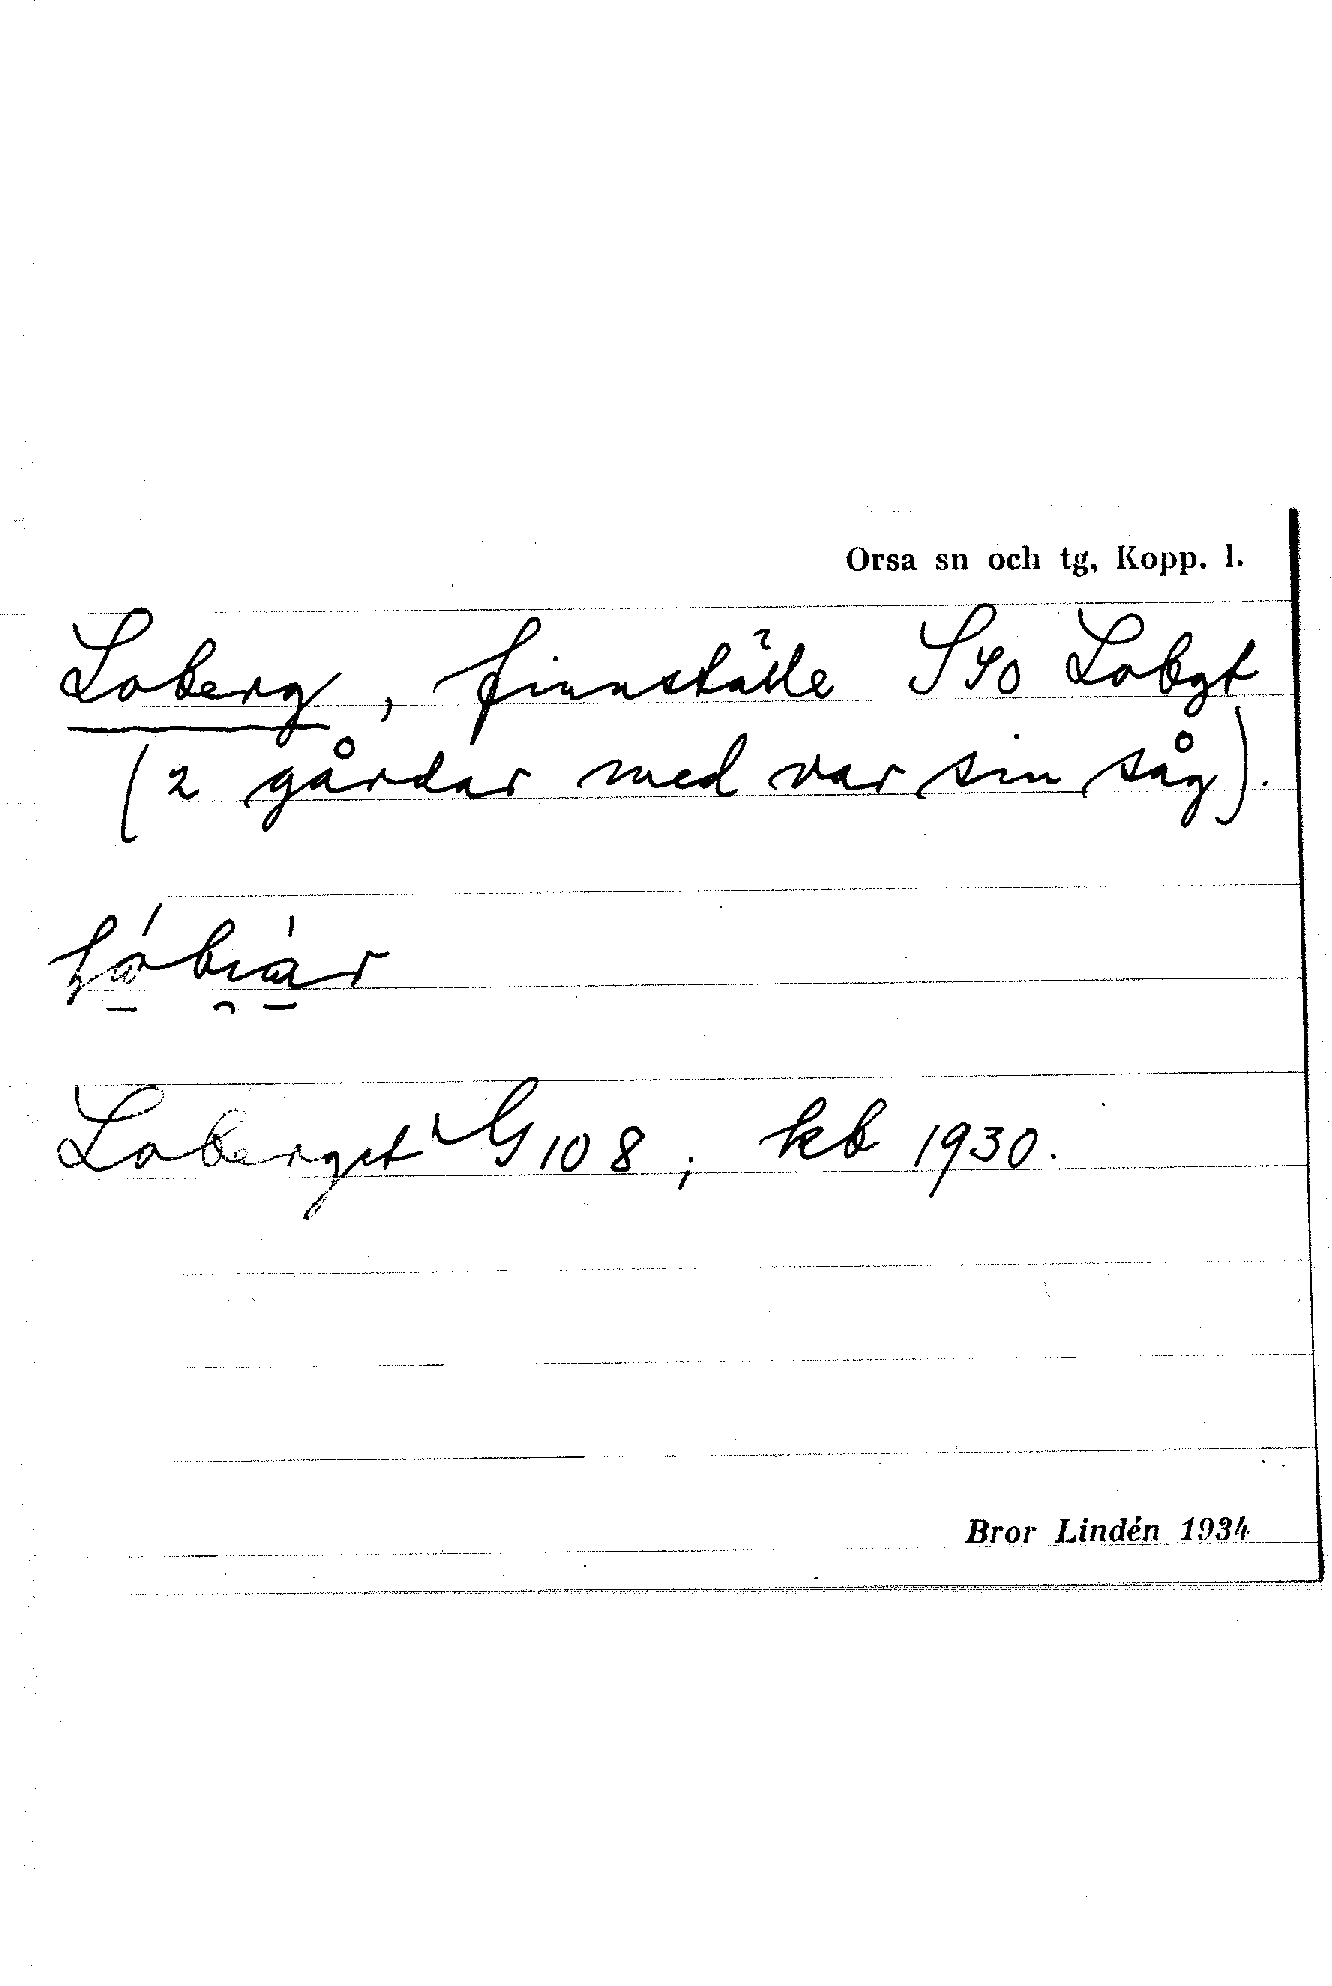 Orsa sn och tg, Kopp. l.
Loberg, finnställe SSO Lobgt
(2 gårdar med var sin såg).
Loberget G 108; kb 1930.
Bror Lindén 1934